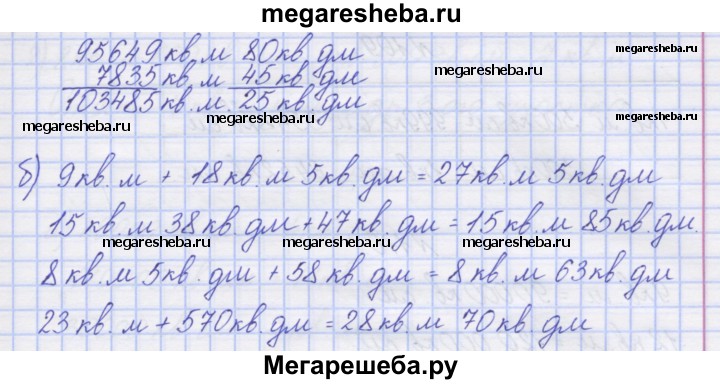 megaresheba.ru
95649 кв. м 80 кв. дм
7835 кв. м 45 кв. дм
megaresheba.ru
megaresheba.ru
103485 кв. м. 25 кв. дм
megaresheba.ru
megaresheba.ru
megaresheba.ru
б) 9 кв. м + 18 кв. м 5 кв. дм = 27 кв. м 5 кв. дм
15 кв. м 38 кв. дм + 47 кв. дм = 15 кв. м 85 кв. дм.
megaresheba.ru
megaresheba.ru
megaresheba.ru
8 кв. м 5 кв. дм + 58 кв. дм = 8 кв. м 63 кв. дм
23 кв. м + 570 кв. дм = 28 кв. м 70 кв. дм
Мегарешеба.ру